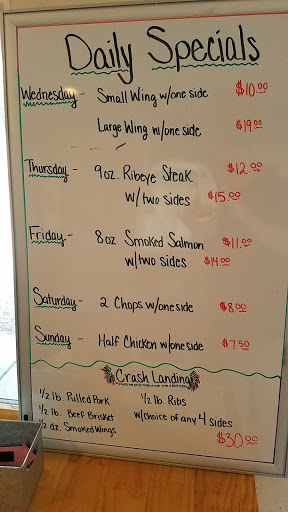 Daily Specials
Wednesday - Small Wing w/one side $10.00
Large Wing w/one side $19.00
Thursday - 9oz. Ribeye Steak $12.00
w/two sides $15.00
Friday - 8oz Smoked Salmon $11.00
w/two sides $14.00
Saturday - 2 Chops w/one side $8.00
Sunday - Half Chicken w/one side $7.50
Crash Landing
1/2 lb. Pulled Pork 1/2 lb. Ribs
1/2 lb. Beef Brisket w/choice of any 4 sides
1/2 dz. Smoked Wings $30.00